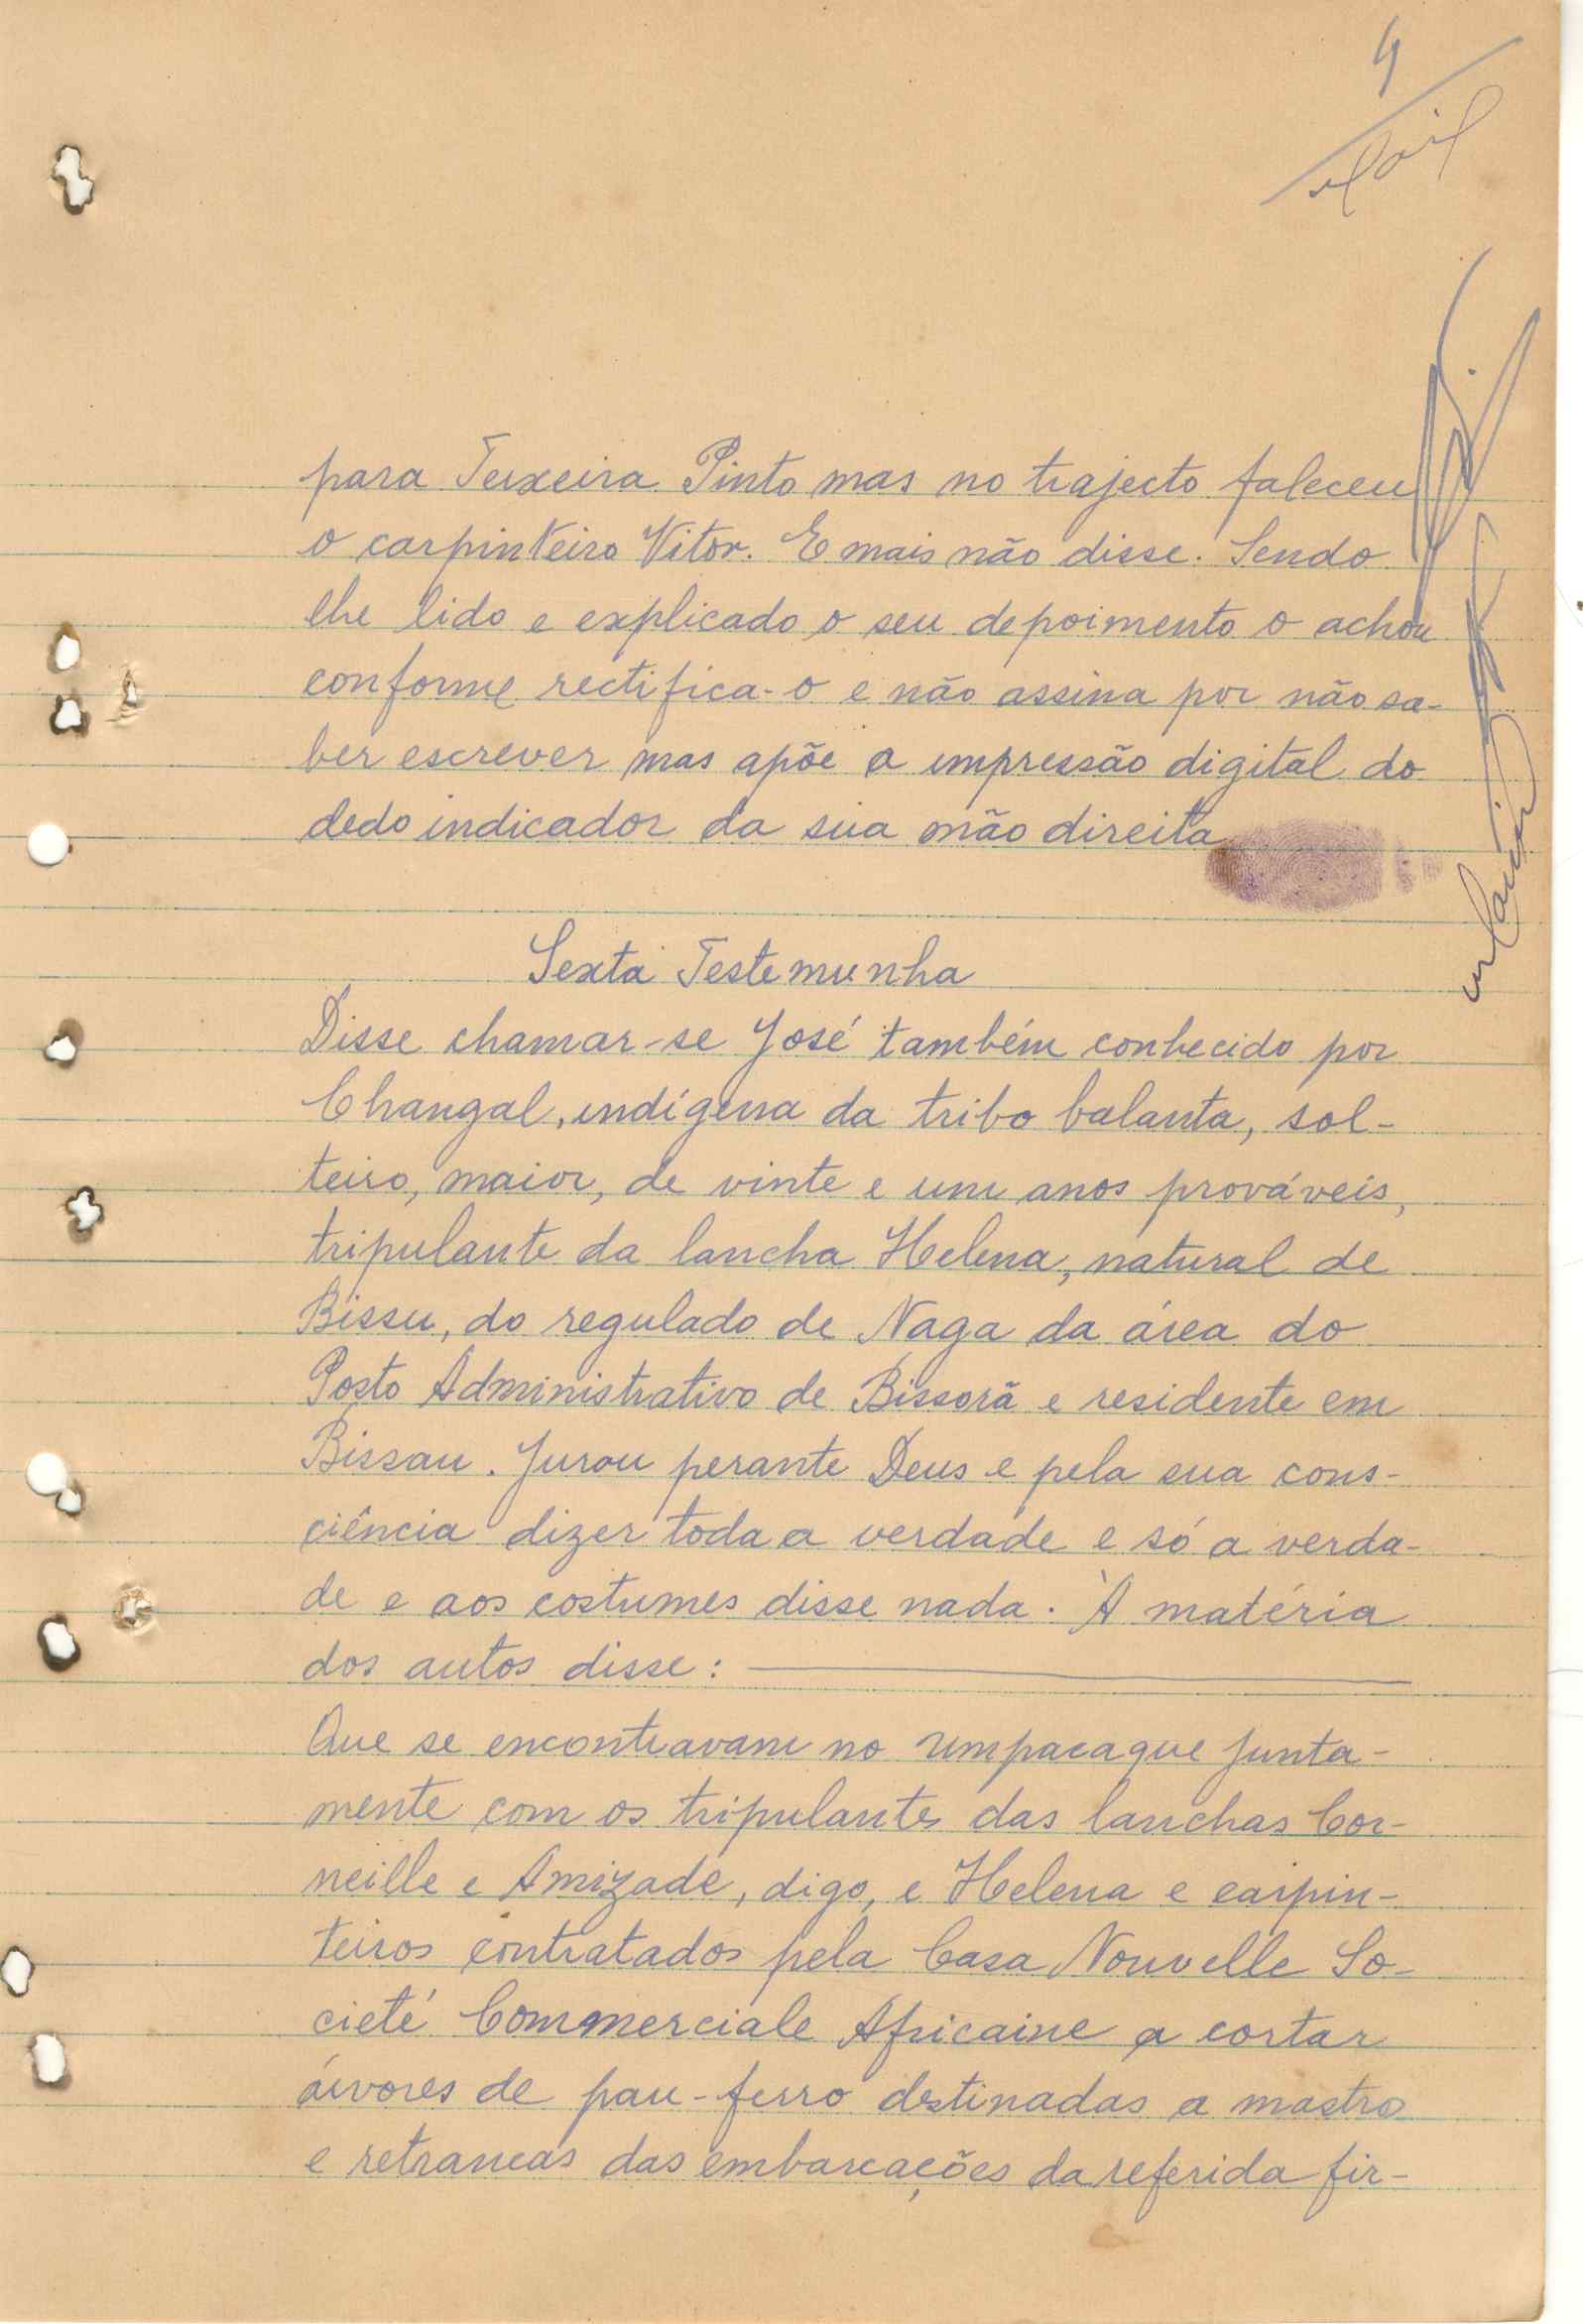 4
para Teixeira Pinto mas no trajecto faleceu
o carpinteiro Vitor. E mais não disse. Sendo
lhe lido e explicado o seu depoimento o achou
conforme rectifica-o e não assina por não sa-
ber escrever mas apõe a impressão digital do
dedo indicador da sua mão direita
Sexta Testemunha
Disse chamar-se José também conhecido por
Changal, indígena da tribo balanta, sol-
teiro, maior, de vinte e um anos prováveis,
tripulante da lancha Helena, natural de
Bissu, do regulado de Naga da área do
Posto Administrativo de Bissorã e residente em
Bissau. Jurou perante Deus e pela sua cons-
ciência dizer toda a verdade e só a verda-
de e aos costumes disse nada. À matéria
dos autos disse:
Que se encontravam no Umpacaque junta-
mente com os tripulantes das lanchas Cor-
neille e Amizade, digo, e Helena e carpin-
teiros contratados pela Casa Nouvelle So-
cieté Commerciale Africaine a cortar
árvores de pau-ferro destinadas a mastros
e retrancas das embarcações da referida fir-